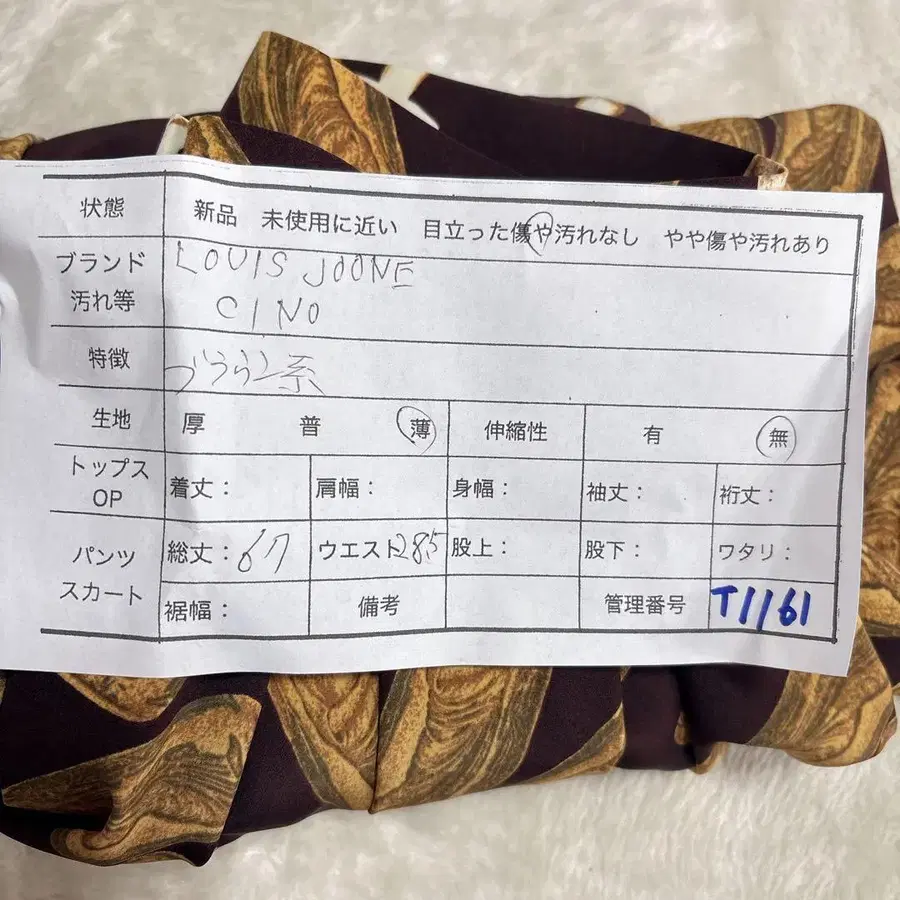 状態 新品 未使用に近い 目立った傷や汚れなし やや傷や汚れあり
ブランド LOUIS JOONE
汚れ等 CINO
特徴 ブラウン系
生地 厚 普 薄 伸縮性 有 無
トップス OP 着丈: 肩幅: 身幅: 袖丈: 裄丈:
パンツ スカート 総丈:67 ウエスト285 股上: 股下: ワタリ:
裾幅: 備考 管理番号 T1161